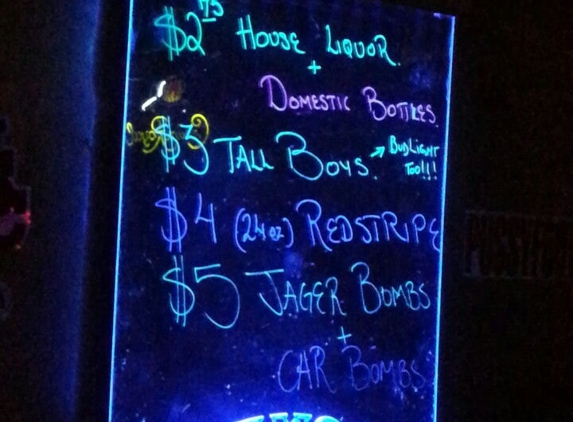 $2.75 House Liquor.
+
Domestic Bottles.
$3 Tall Boys. → Bud Light
Too!!!
$4 (24oz) RedStripe
$5 Jager Bombs
+
Car Bombs